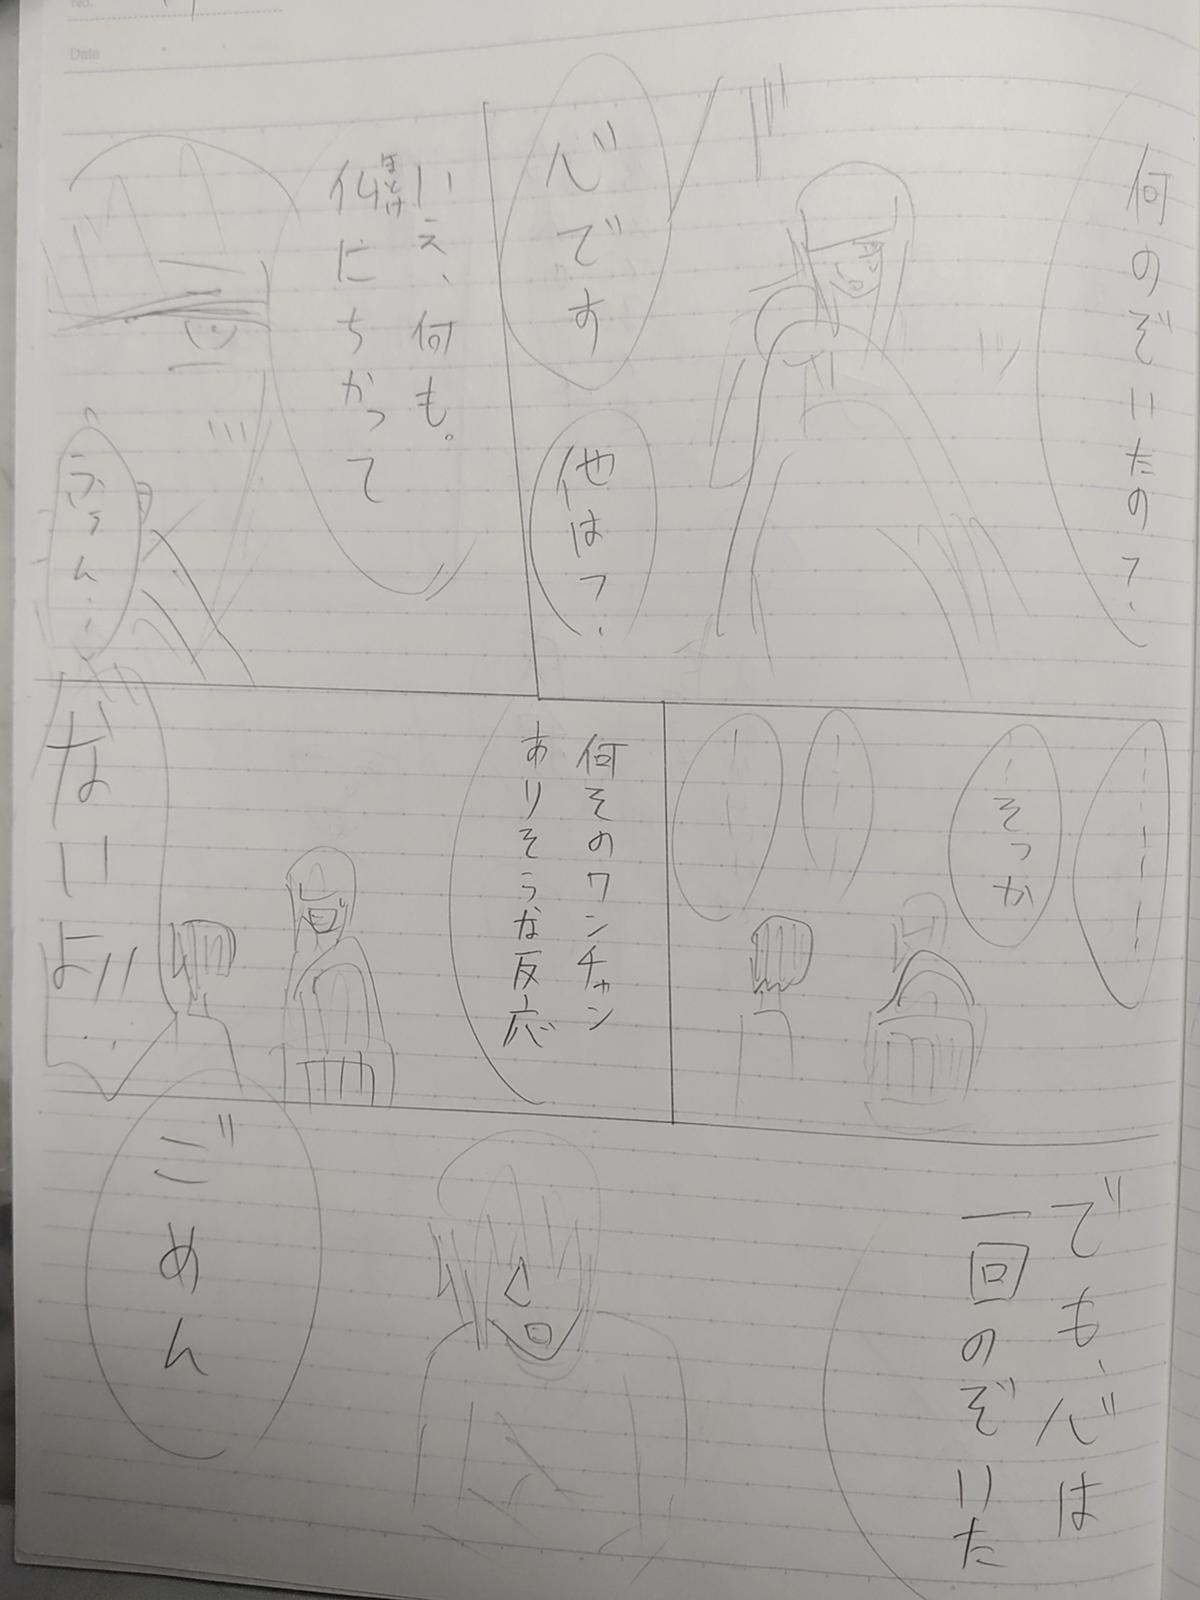 No.
Date
何のぞいたの?
心です
他は?
いえ、何も。
仏にちかって
ほとけ
ふぅん…
そっか
何そのワンチャン
ありそうな反応
ないよ!!
でも、心は
一回のぞいた
ごめん